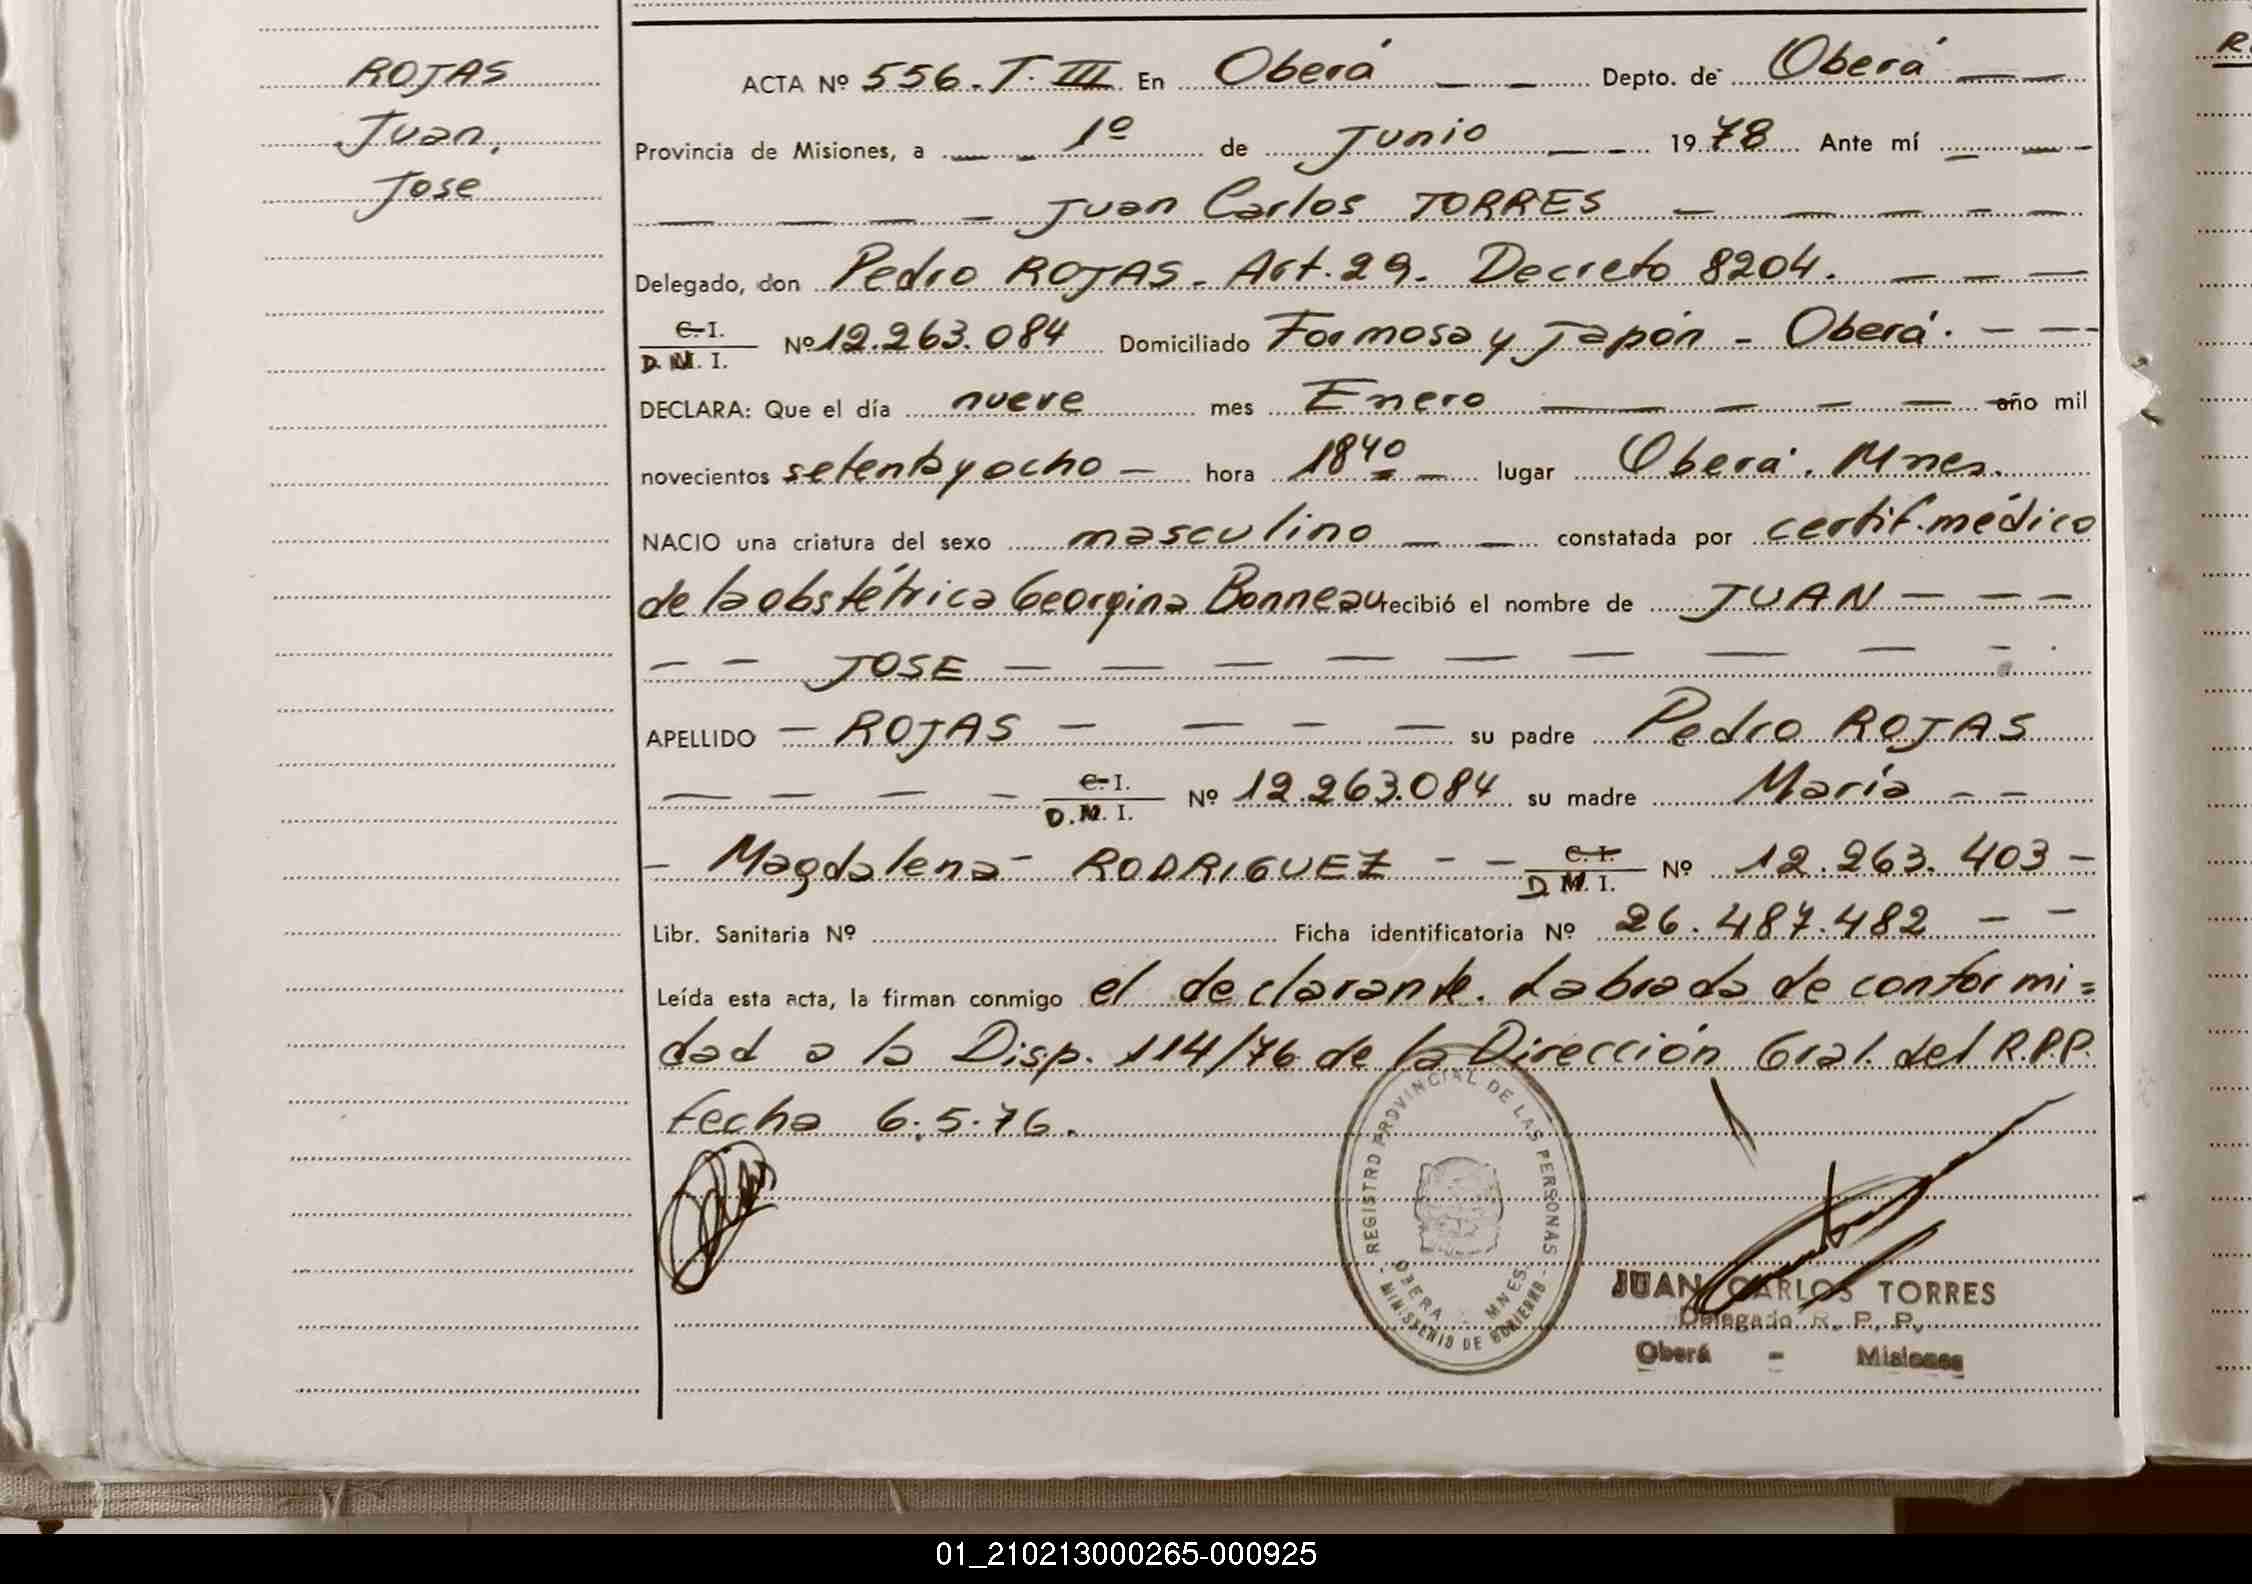 ROJAS
Juan,
Jose
ACTA Nº 556. T. III En Oberá Depto. de Oberá
Provincia de Misiones, a 1º de Junio 1978 Ante mí
Juan Carlos TORRES
Delegado, don Pedro ROJAS. Art. 29. Decreto 8204.
C. I.
D. N. I. Nº 12.263.084 Domiciliado Formosa y Japón - Oberá.
DECLARA: Que el día nueve mes Enero año mil
novecientos setenta y ocho hora 18 40 lugar Oberá. Mnes.
NACIO una criatura del sexo masculino constatada por certif. médico
de la obstétrica Georgina Bonneau recibió el nombre de JUAN
JOSE
APELLIDO ROJAS su padre Pedro ROJAS
C. I.
D. N. I. Nº 12.263.084 su madre María
Magdalena RODRIGUEZ C. I.
D. N. I. Nº 12.263.403
Libr. Sanitaria Nº Ficha identificatoria Nº 26.487.482
Leída esta acta, la firman conmigo el declarante. Labrada de conformi=
dad a la Disp. 114/76 de la Dirección Gral. del R.P.P.
fecha 6.5.76.
REGISTRO PROVINCIAL DE LAS PERSONAS
OBERA - MNES.
- MINISTERIO DE GOBIERNO -
JUAN CARLOS TORRES
Delegado R. P. P.
Oberá - Misiones
01_210213000265-000925